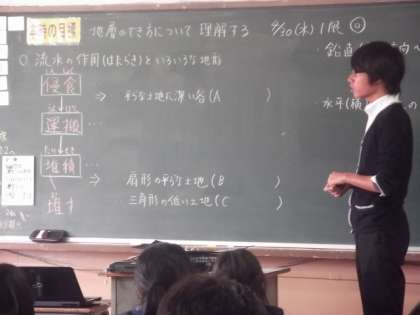 本時の目標 地層のでき方について理解する 9/30(水) 1限
・鉛直
○ 流水の作用(はたらき)といろいろな地形
しんしょく
侵食 ⇒ 平らな土地に深い谷(A )
・水平(積
運搬 …
たいせき
堆積 …
⇒ 扇形の平らな土地(B )
三角形の低い土地(C )